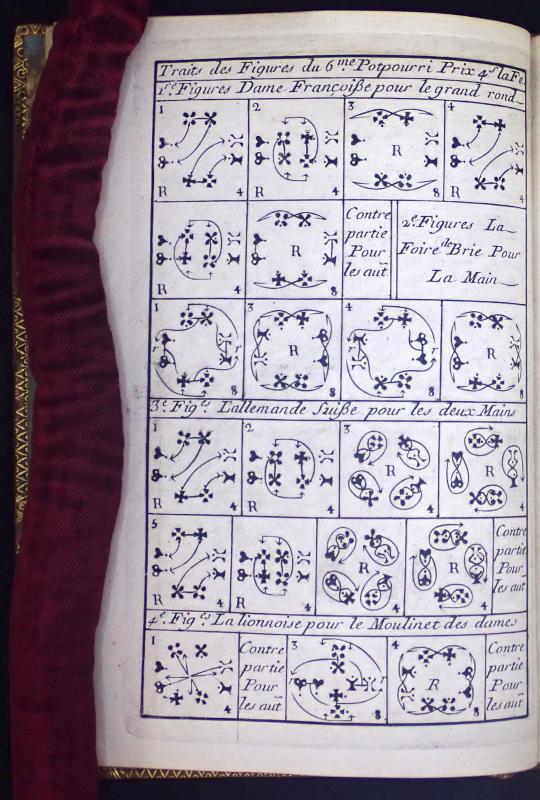 Traits des Figures du 6.me Potpourri Prix 4.s la Fe.
1.re Figures Dame Françoiße pour le grand rond
1 2 3 4
R 4 R 4 R 8 R 4
R 4 R 8
Contre
partie
Pour
les aut
2.e Figures La
Foire de Brie Pour
La Main
1 3 4
r r 8 R 8 r r 8 R 8
3.e Fig.es Lallemande Suiße pour les deux Mains
1 2 3 4
R 4 R 4 R 4 R 4
5
R 4 R 4 R 4 R 4
Contre
partie
Pour
les aut
4.e Fig.es La lionnoise pour le Moulinet des dames
1
4
Contre
partie
Pour
les aut
3 4
r r 8 R 8
Contre
partie
Pour
les aut